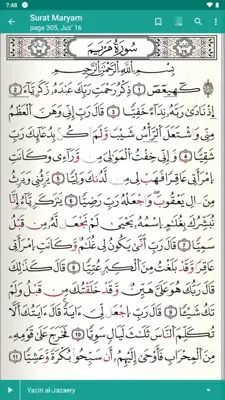 7:48
Surat Maryam
page 305, Juz' 16
سُورَةُ مَرْيَمَ
بِسْمِ اللَّهِ الرَّحْمَٰنِ الرَّحِيمِ
كٓهيعٓصٓ ١ ذِكْرُ رَحْمَتِ رَبِّكَ عَبْدَهُۥ زَكَرِيَّآ ٢
إِذْ نَادَىٰ رَبَّهُۥ نِدَآءً خَفِيًّا ٣ قَالَ رَبِّ إِنِّى وَهَنَ ٱلْعَظْمُ
مِنِّى وَٱشْتَعَلَ ٱلرَّأْسُ شَيْبًا وَلَمْ أَكُنۢ بِدُعَآئِكَ رَبِّ
شَقِيًّا ٤ وَإِنِّى خِفْتُ ٱلْمَوَٰلِىَ مِن وَرَآءِى وَكَانَتِ
ٱمْرَأَتِى عَاقِرًا فَهَبْ لِى مِن لَّدُنكَ وَلِيًّا ٥ يَرِثُنِى وَيَرِثُ
مِنْ ءَالِ يَعْقُوبَ وَٱجْعَلْهُ رَبِّ رَضِيًّا ٦ يَٰزَكَرِيَّآ إِنَّا
نُبَشِّرُكَ بِغُلَٰمٍ ٱسْمُهُۥ يَحْيَىٰ لَمْ نَجْعَل لَّهُۥ مِن قَبْلُ
سَمِيًّا ٧ قَالَ رَبِّ أَنَّىٰ يَكُونُ لِى غُلَٰمٌ وَكَانَتِ ٱمْرَأَتِى
عَاقِرًا وَقَدْ بَلَغْتُ مِنَ ٱلْكِبَرِ عِتِيًّا ٨ قَالَ كَذَٰلِكَ
قَالَ رَبُّكَ هُوَ عَلَىَّ هَيِّنٌ وَقَدْ خَلَقْتُكَ مِن قَبْلُ وَلَمْ
تَكُ شَيْـًٔا ٩ قَالَ رَبِّ ٱجْعَل لِّىٓ ءَايَةً قَالَ ءَايَتُكَ أَلَّا
تُكَلِّمَ ٱلنَّاسَ ثَلَٰثَ لَيَالٍ سَوِيًّا ١٠ فَخَرَجَ عَلَىٰ قَوْمِهِۦ
مِنَ ٱلْمِحْرَابِ فَأَوْحَىٰٓ إِلَيْهِمْ أَن سَبِّحُوا۟ بُكْرَةً وَعَشِيًّا ١١
Yacin al-Jazaery